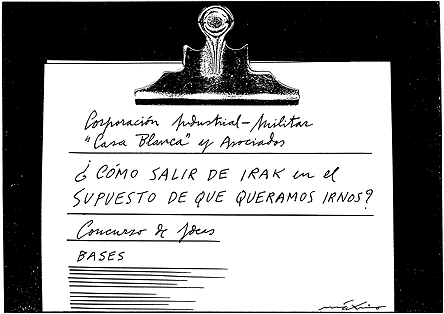 Corporación Industrial-Militar
"Casa Blanca" y Asociados
¿CÓMO SALIR DE IRAK en el
SUPUESTO DE QUE QUERAMOS IRNOS?
Concurso de Ideas
BASES
máximo